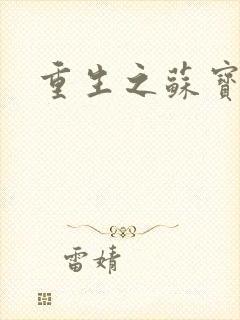 重生之蘇寶
雷婧